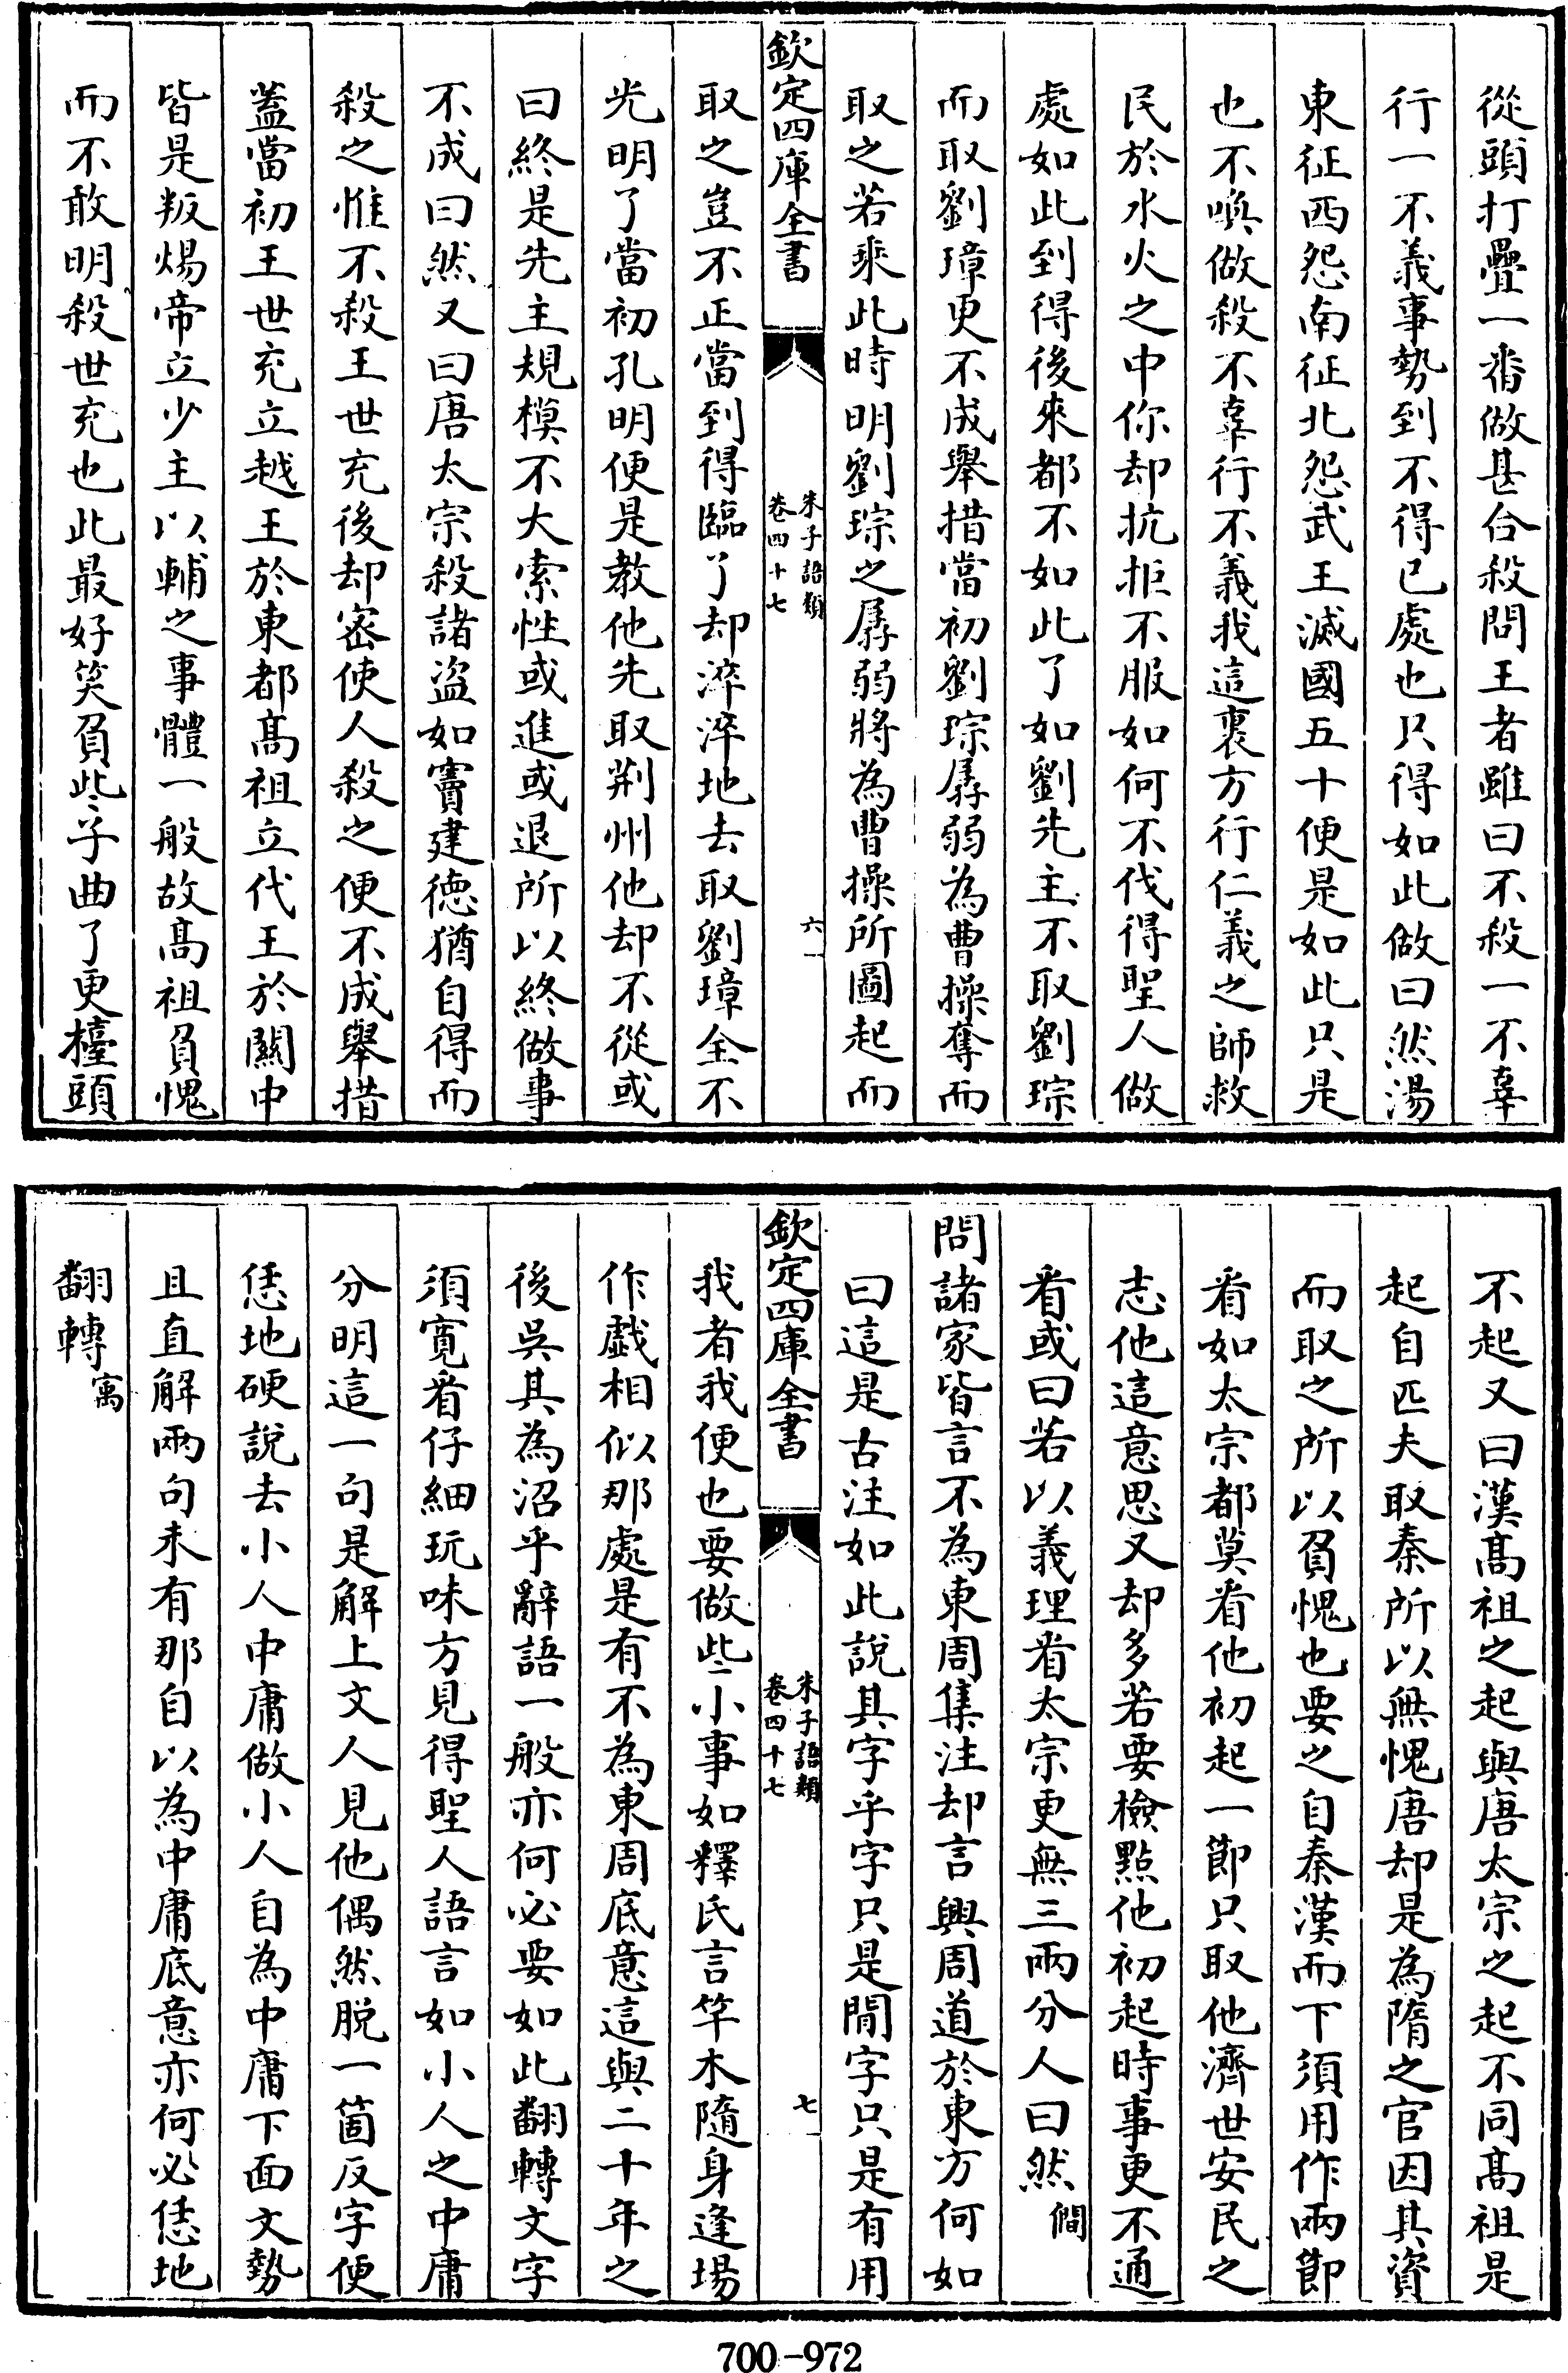 從頭打疊一番做甚合殺問王者雖曰不殺一不辜
行一不義事勢到不得已處也只得如此做曰然湯
東征西怨南征北怨武王滅國五十便是如此只是
也不喚做殺不辜行不義我這裏方行仁義之師救
民於水火之中你却抗拒不服如何不伐得聖人做
處如此到得後來都不如此了如劉先主不取劉琮
而取劉璋更不成舉措當初劉琮孱弱為曹操奪而
取之若乘此時明劉琮之孱弱將為曹操所圖起而
欽定四庫全書
朱子語類
卷四十七
六
取之豈不正當到得臨了却淬淬地去取劉璋全不
光明了當初孔明便是教他先取荆州他却不從或
曰終是先主規模不大索性或進或退所以終做事
不成曰然又曰唐太宗殺諸盜如竇建德猶自得而
殺之惟不殺王世充後却密使人殺之便不成舉措
蓋當初王世充立越王於東都髙祖立代王於關中
皆是叛煬帝立少主以輔之事體一般故髙祖負愧
而不敢明殺世充也此最好笑負些子曲了更擡頭
不起又曰漢髙祖之起與唐太宗之起不同髙祖是
起自匹夫取秦所以無愧唐却是為隋之官因其資
而取之所以負愧也要之自秦漢而下須用作兩節
看如太宗都莫看他初起一節只取他濟世安民之
志他這意思又却多若要檢點他初起時事更不通
看或曰若以義理看太宗更無三兩分人曰然 僩
問諸家皆言不為東周集注却言興周道於東方何如
曰這是古注如此說其字乎字只是閒字只是有用
欽定四庫全書
朱子語類
卷四十七
七
我者我便也要做些小事如釋氏言竿木隨身逢場
作戲相似那處是有不為東周底意這與二十年之
後吳其為沼乎辭語一般亦何必要如此翻轉文字
須寛看仔細玩味方見得聖人語言如小人之中庸
分明這一句是解上文人見他偶然脱一箇反字便
恁地硬說去小人中庸做小人自為中庸下面文勢
且直解兩句未有那自以為中庸底意亦何必恁地
翻轉 㝢
700-972